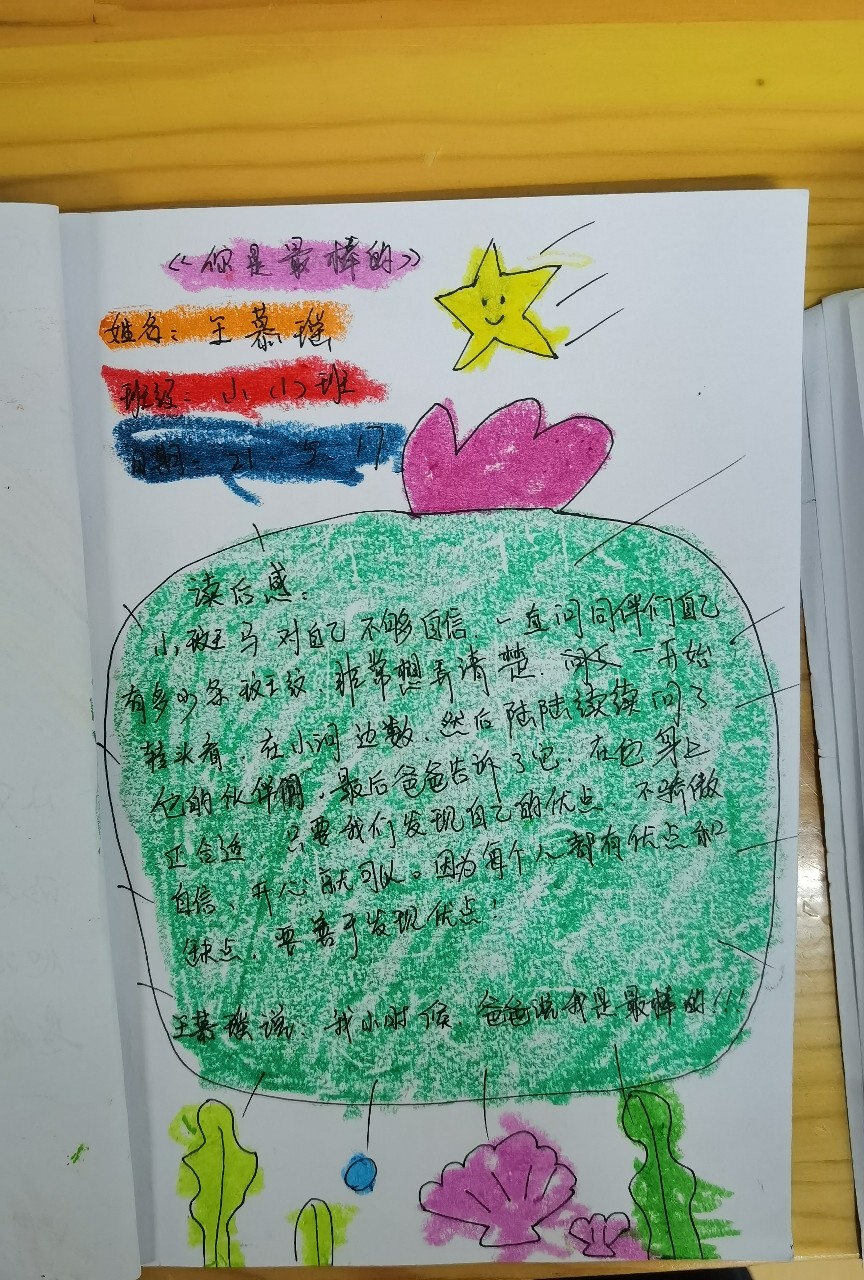 《你是最棒的》
姓名：王慕瑶
班级：小（1）班
日期：21.5.17
读后感：
小斑马对自己不够自信，一直问同伴们自己
有多少条斑纹，非常想弄清楚。一开始
转头看，在小河边数，然后陆陆续续问了
他的伙伴们，最后爸爸告诉了它，在它身上
正合适 只要我们发现自己的优点，不骄傲
自信、开心就可以。因为每个人都有优点和
缺点，要善于发现优点！
王慕瑶说：我小时候，爸爸说我是最棒的！！！